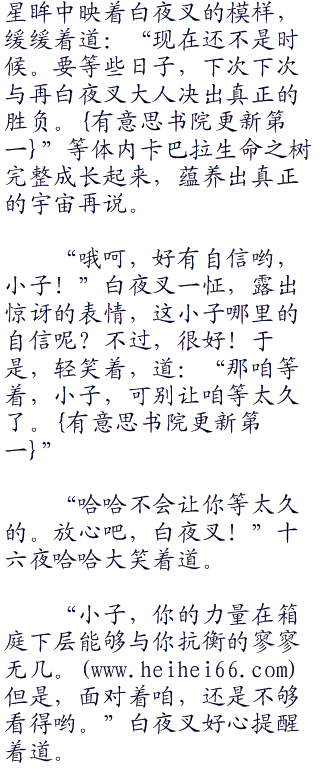 星眸中映着白夜叉的模样，
缓缓着道：“现在还不是时
候。要等些日子，下次下次
与再白夜叉大人决出真正的
胜负。{有意思书院更新第
一}”等体内卡巴拉生命之树
完整成长起来，蕴养出真正
的宇宙再说。
“哦呵，好有自信哟，
小子！”白夜叉一怔，露出
惊讶的表情，这小子哪里的
自信呢？不过，很好！于
是，轻笑着，道：“那咱等
着，小子，可别让咱等太久
了。{有意思书院更新第
一}”
“哈哈不会让你等太久
的。放心吧，白夜叉！”十
六夜哈哈大笑着道。
“小子，你的力量在箱
庭下层能够与你抗衡的寥寥
无几。(www.heihei66.com)
但是，面对着咱，还是不够
看得哟。”白夜叉好心提醒
着道。